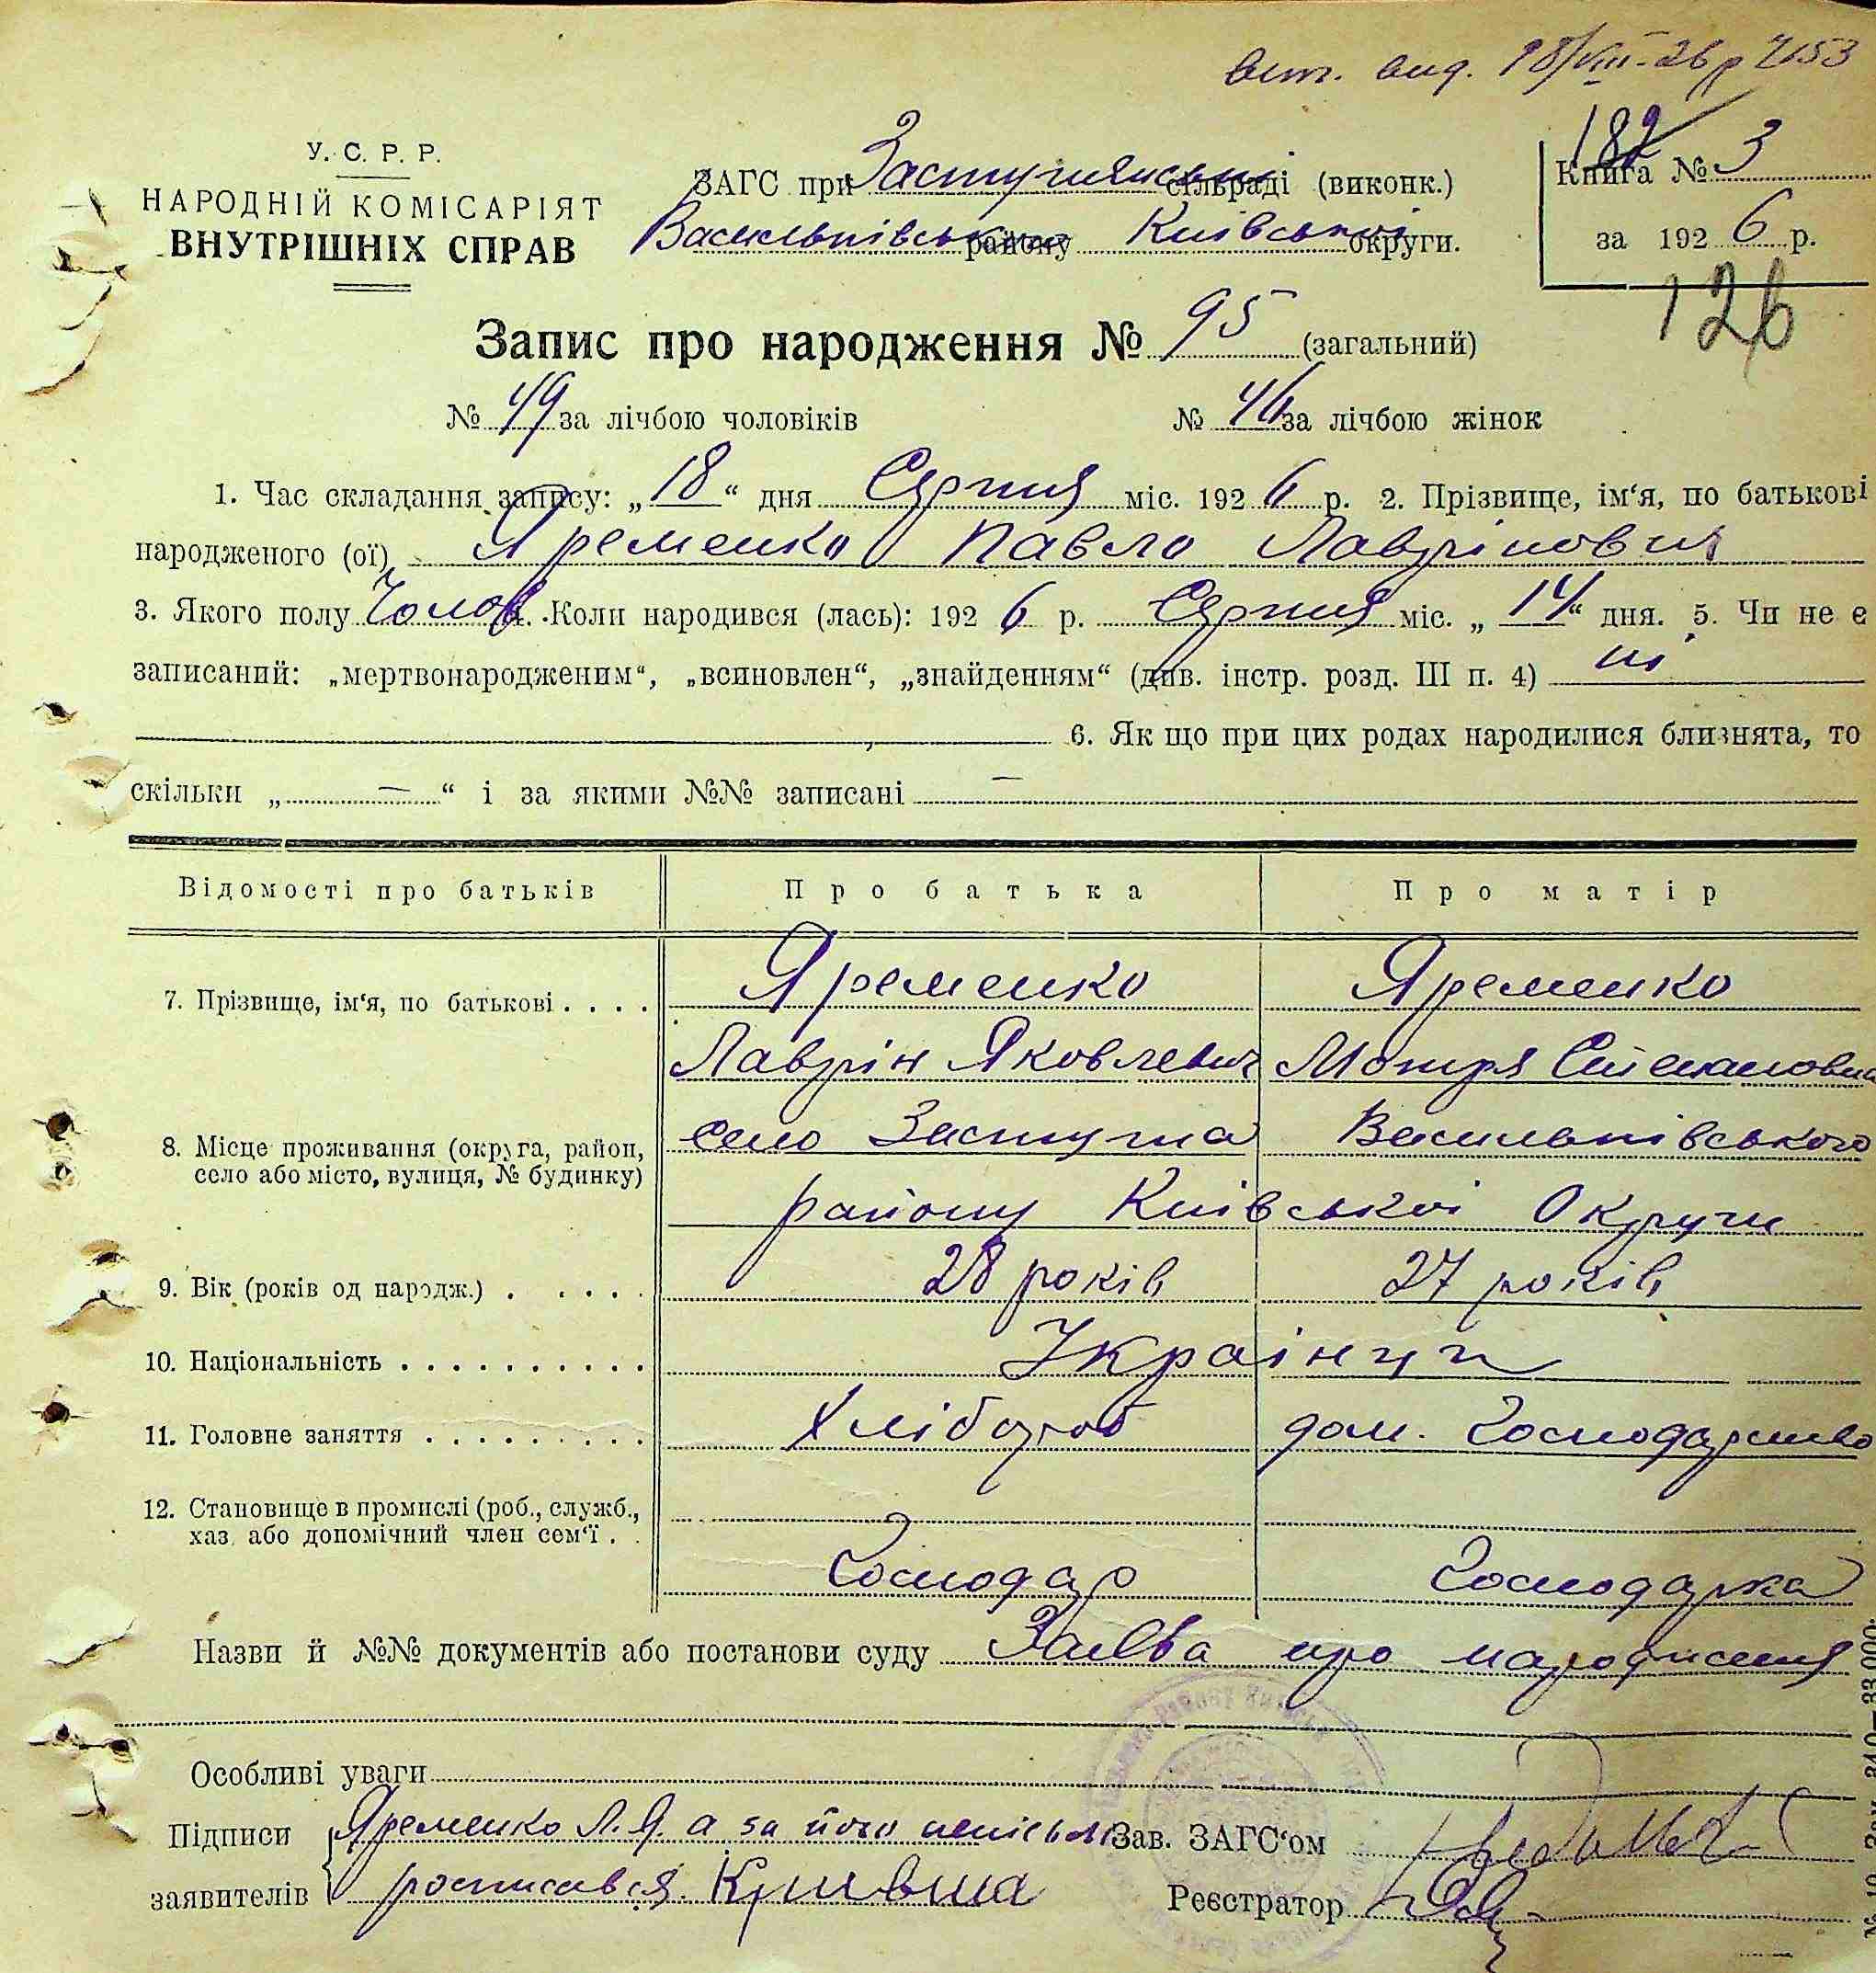 вит. вид. 18/VIII-26р 7153
У. С. Р. Р.
НАРОДНІЙ КОМІСАРІЯТ
ВНУТРІШНІХ СПРАВ
ЗАГС при Застугнянській сільраді (виконк.)
Васильківського району Київської округи.
182
Книга № 3
за 1926 р.
126
Запис про народження № 95 (загальний)
№ 49 за лічбою чоловіків № 46 за лічбою жінок
1. Час складання запису: „18“ дня Серпня міс. 1926 р. 2. Прізвище, ім‘я, по батькові
народженого (ої) Яременко Павло Лаврінович
3. Якого полу Чолов. 4. Коли народився (лась): 1926 р. Серпня міс. „14“ дня. 5. Чи не є
записаний: „мертвонародженим“, „всиновлен“, „знайденням“ (див. інстр. розд. III п. 4) ні
6. Як що при цих родах народилися близнята, то
скільки „ — “ і за якими №№ записані —
Відомості про батьків Про батька Про матір
7. Прізвище, ім‘я, по батькові . . . . Яременко Яременко
Лаврін Яковлевич Мотря Степановна
8. Місце проживання (округа, район, село Застугна Васильківського
село або місто, вулиця, № будинку)
району Київської Округи
9. Вік (років од народж.) . . . . . 28 років 27 років
10. Національність . . . . . . . . . . Українци
11. Головне заняття . . . . . . . . . Хлібороб дом. Господарство
12. Становище в промислі (роб., служб.,
хаз. або допомічний член сем‘ї . .
Господар Господарка
Назви й №№ документів або постанови суду Заява про народження
Особливі уваги
Підписи Яременко Л. Я. а за його неписьм. Зав. ЗАГС‘ом
заявителів росписався Кривша Реєстратор